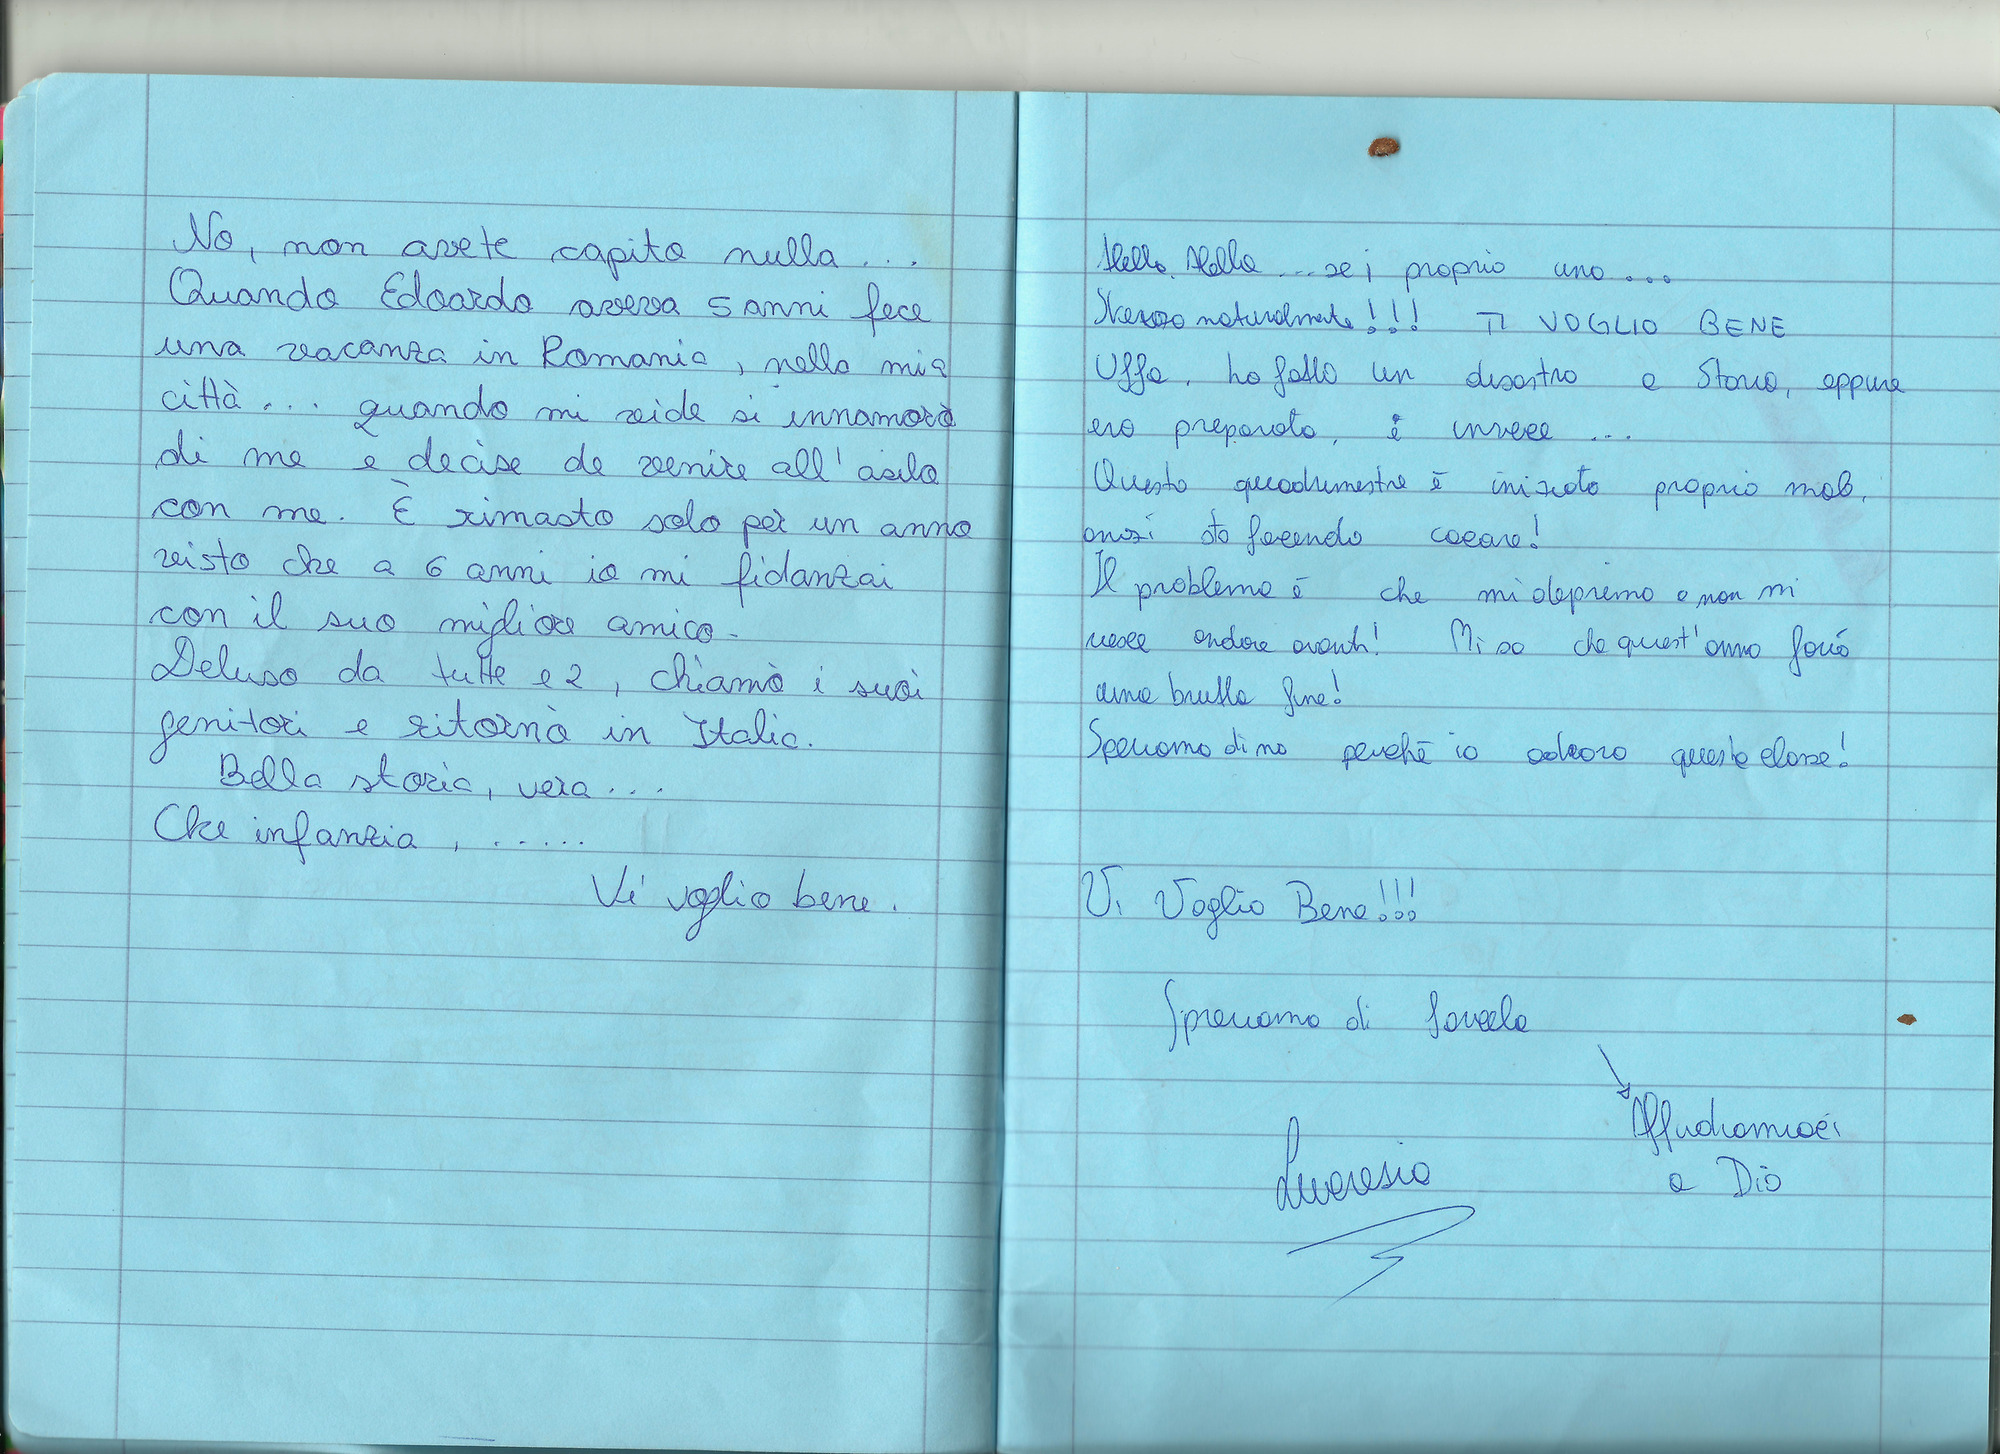 No, non avete capito nulla ...
Quando Edoardo aveva 5 anni fece
una vacanza in Romania, nella mia
città ... quando mi vide si innamorò
di me e decise de venire all'asilo
con me. È rimasto solo per un anno
visto che a 6 anni io mi fidanzai
con il suo migliore amico.
Deluso da tutte e 2, chiamò i suoi
genitori e ritornò in Italia.
Bella storia, vera ...
Che infanzia, .....
Vi voglio bene.
Stella, Stella ... sei proprio una ...
Scherzo naturalmente!!! TI VOGLIO BENE
Uffa, ho fatto un disastro a Storia, eppure
ero preparata, e invece ...
Questo quadrimestre è iniziato proprio male,
anzi sto facendo cacare!
Il problema è che mi deprimo e non mi
riesce andare avanti! Mi sa che quest'anno farò
una brutta fine!
Speriamo di no perché io adoro questa classe!
Vi Voglio Bene!!!
Speriamo di farcela
Affidiamoci
a Dio
Lucrezia